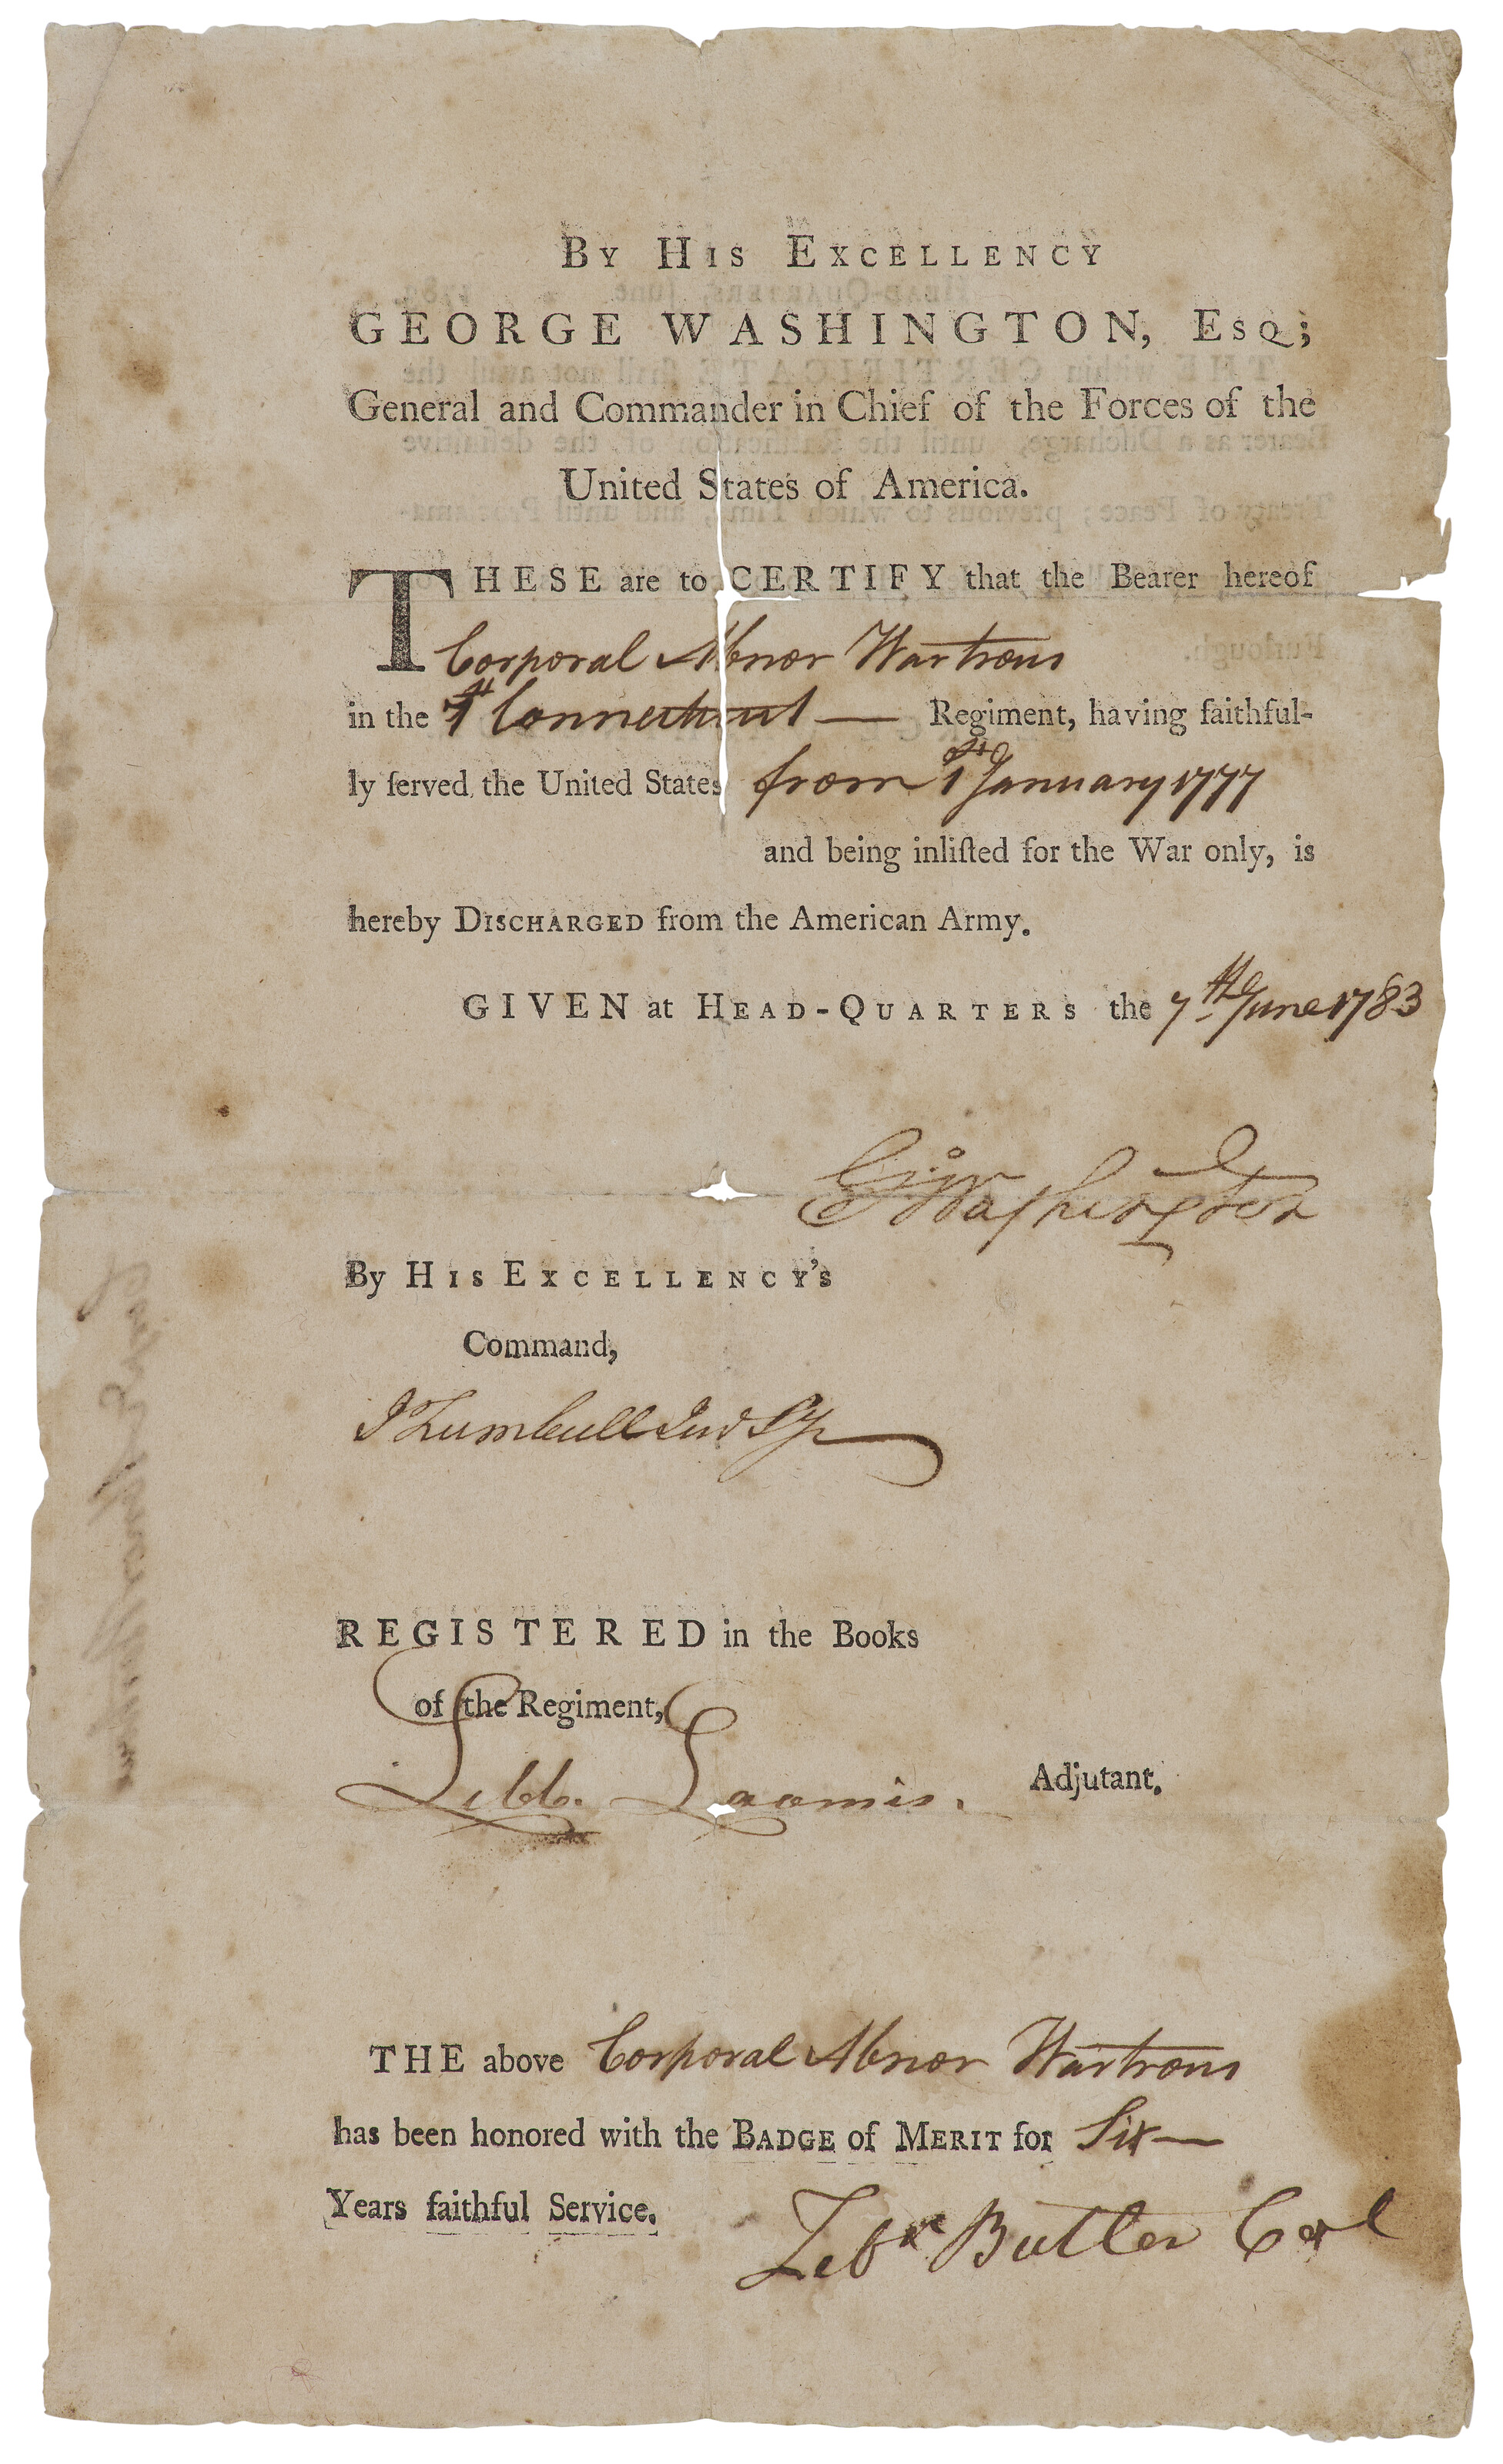 By His Excellency
GEORGE WASHINGTON, Esq;
General and Commander in Chief of the Forces of the
United States of America.
THESE are to CERTIFY that the Bearer hereof
Corporal Abnor Wartrous
in the 1st Connecticut — Regiment, having faithful-
ly ſerved the United States from 1st January 1777
and being inliſted for the War only, is
hereby Discharged from the American Army.
GIVEN at Head-Quarters the 7th June 1783
Go Washington
By His Excellency's
Command,
J Trumbull Jun Sy
REGISTERED in the Books
of the Regiment,
Libb. Loomis. Adjutant.
THE above Corporal Abnor Wartrous
has been honored with the Badge of Merit for Six —
Years faithful Service.
Zebn Butler Col